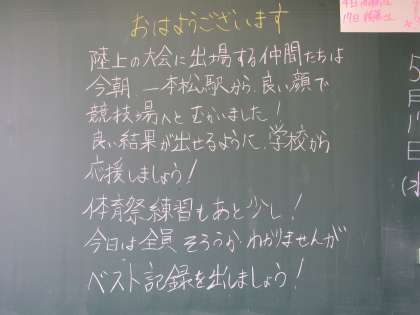 おはようございます
陸上の大会に出場する仲間たちは
今朝、一本松駅から、良い顔で
競技場へとむかいました!
良い結果が出せるように、学校から
応援しましょう!
体育祭練習もあと少し!
今日は全員そろうかわかりませんが
ベスト記録を出しましょう!
5月
日
(水